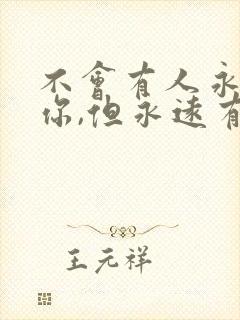 不會有人永
你,但永遠有
王元祥